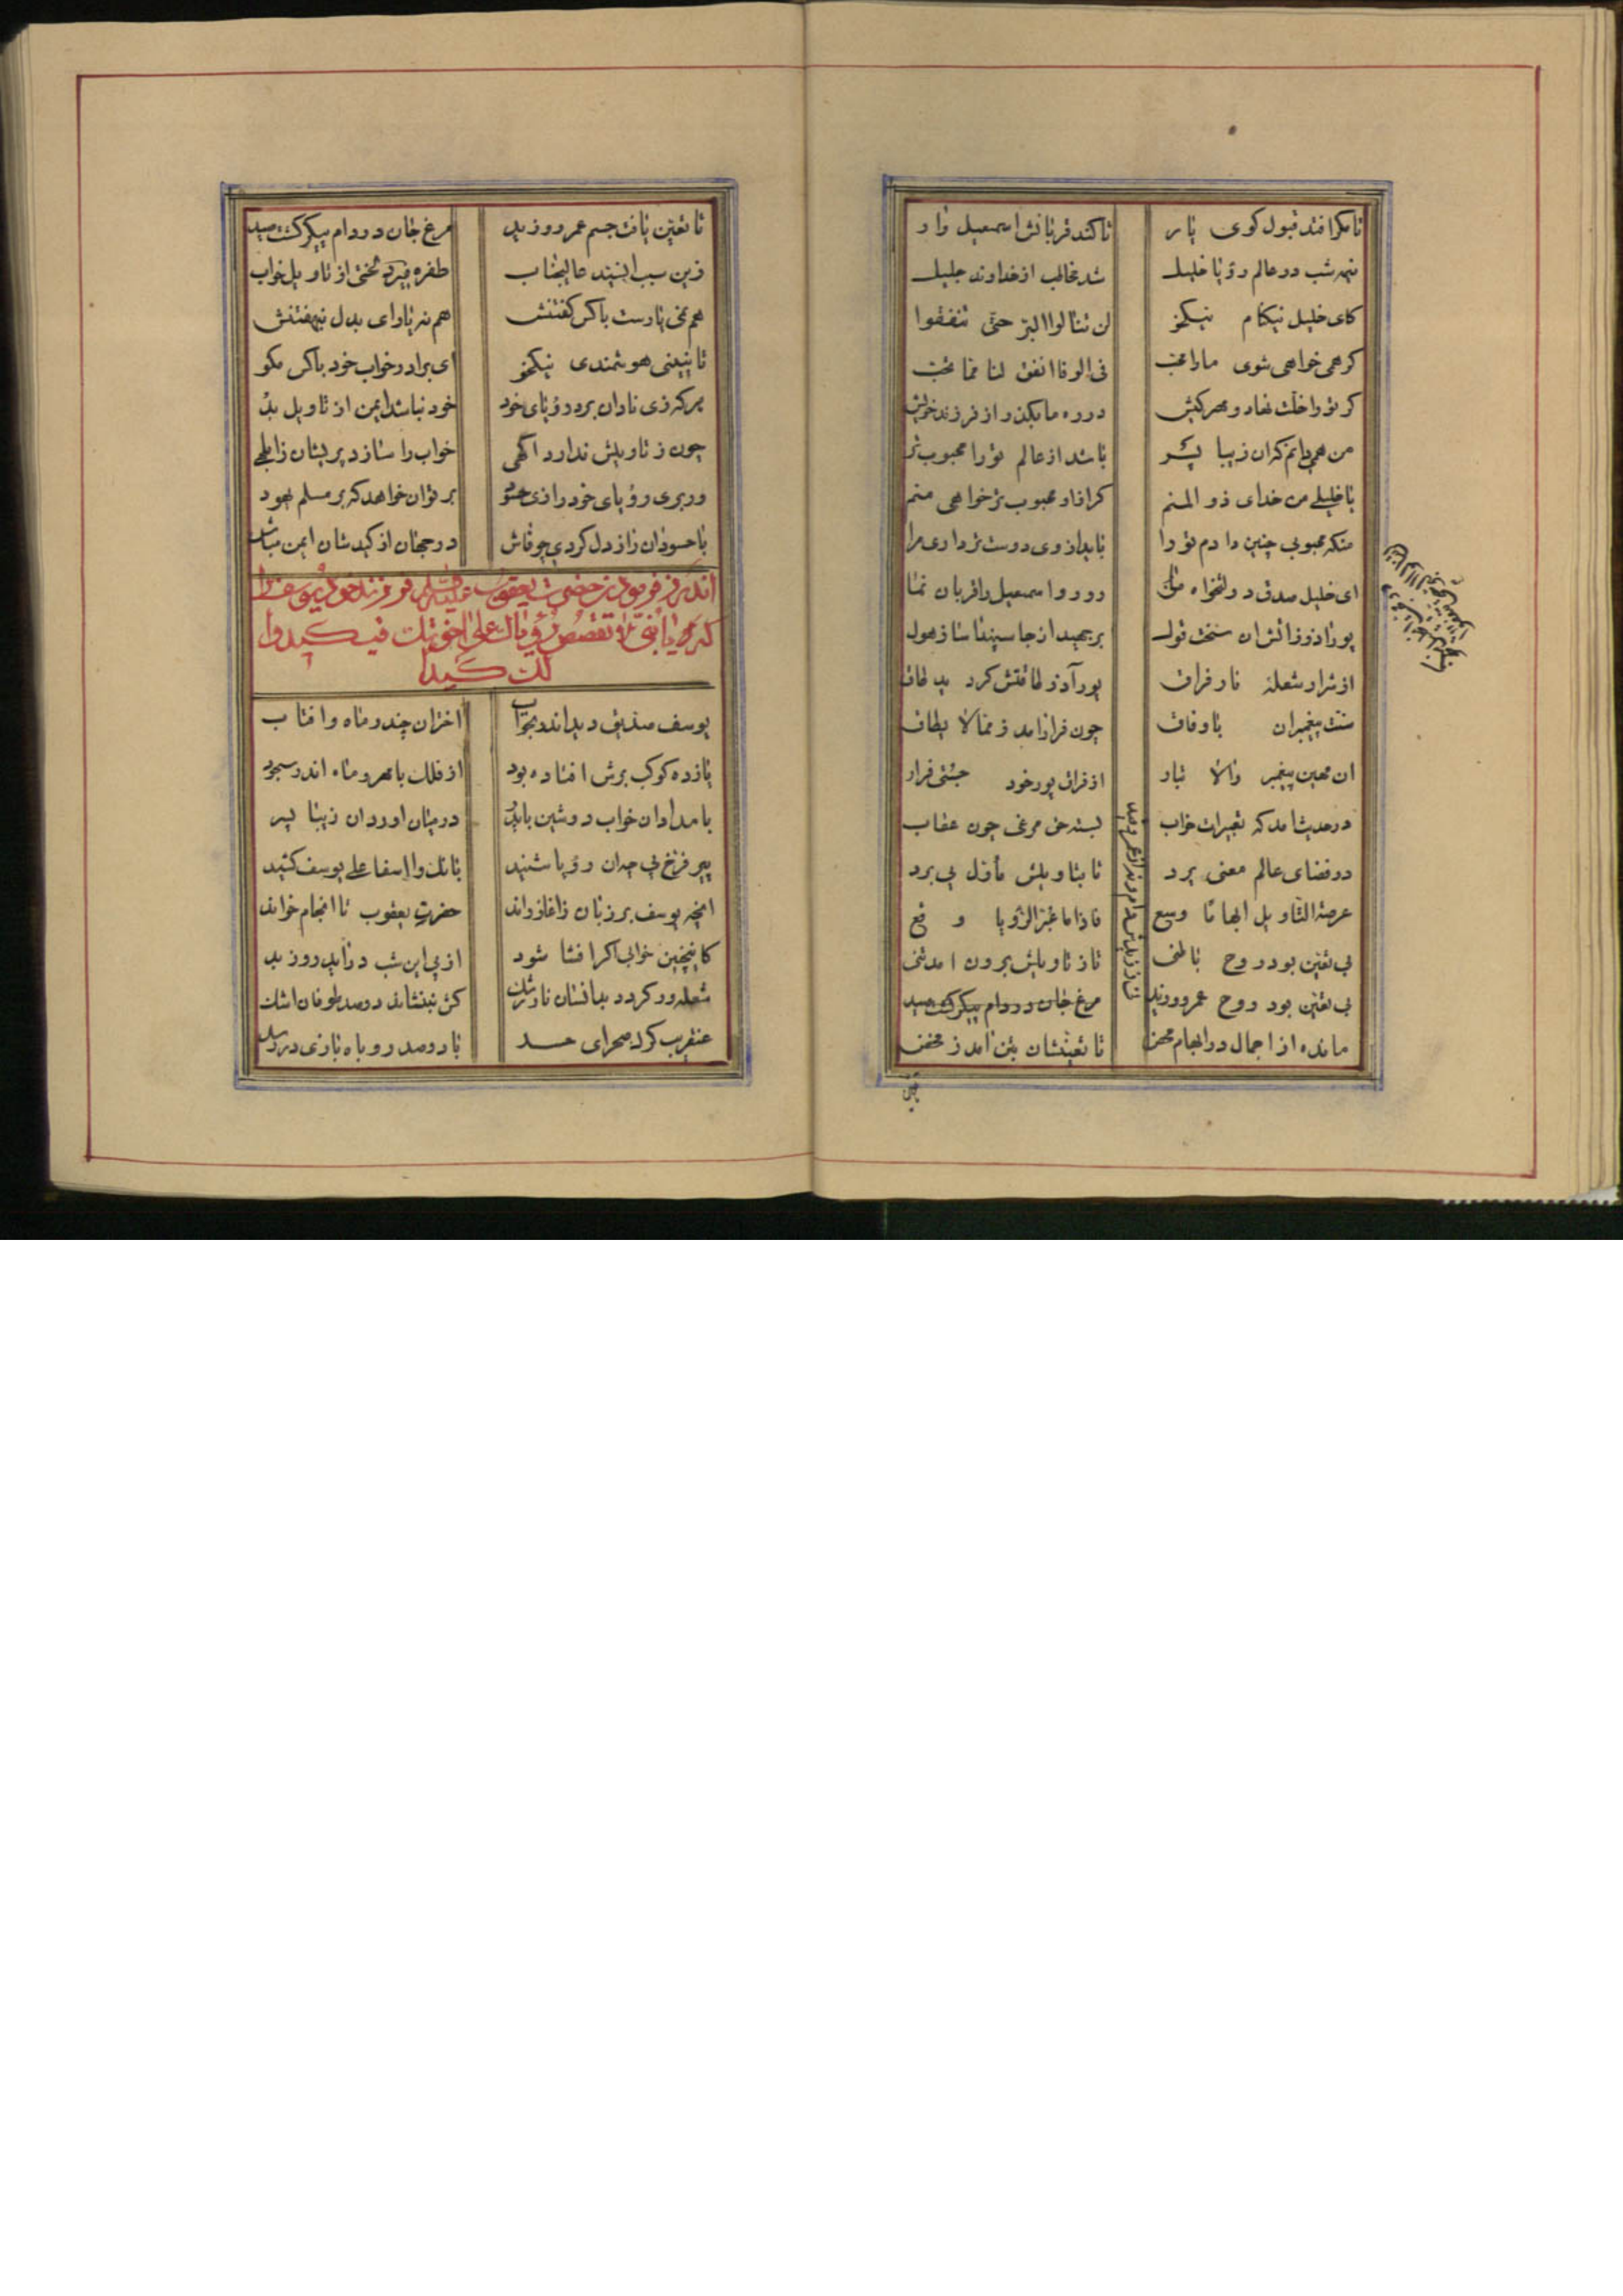 تا مگر افتد قبول کوی یار تا کند قربانش اسمعیل وار
نیمه شب در عالم رؤیا خلیل شد مخاطب از خداوند جلیل
کای خلیل نیکنام نیکخو لن تنالوا البرّ حتّی تنفقوا
گر همی خواهی شوی ما را محب فی الوفا انفق لنا ممّا تحب
گر تو را خلّت نهاد و مهر کیش در ره ما بگذر از فرزند خویش
من همی دانم که آن زیبا پسر باشد از عالم تو را محبوب‌تر
با خلیلی من خدای ذو المنم گر از او محبوب‌تر خواهی منم
منکه محبوبی چنین دادم تو را باید از وی دوست‌تر داری مرا
ای خلیل صدق دولتخواه ما رو رو اسمعیل را قربان نما
پور آذر ز آتش آن سخت قول برجهید از جا سپندآسا ز هول
از شرار شعله نار فراق پور آذر طاقتش گردید طاق
سنت پیغمبران با وفاق چون فراز آمد ز ممّا لا یطاق
آن مهین پیغمبر والا تبار از فراق پور خود جستی فرار
در حدیث آمد که تعبیرات خواب بسته حق مرغی چون عقاب
در فضای عالم معنی پرد تا بتاویلش ماوّل پی برد
عرصة التّاویل ایهاتا وسیع فاذا ما عبّر الرّؤیا وقع
بی تعیّن بود روح باطنی تا ز تاویلش برون آمد تنی
بی تعیّن بود روح عمرو و زید مرغ جان در دام پیکر گشت صید
مانده از اجمال در ابهام محض تا تعیّنشان
تا تعیّن یافت جسم عمرو و زید مرغ جان در دام پیکر گشت صید
زین سبب اینند عالیجناب طفره میزد لختی از تاویل خواب
هم نمی یارست با کس گفتنش هم نه یارای بدل بنهفتنش
تا نبینی هوشمندی نیکخو ای برادر خواب خود با کس مگو
هر که زی نادان برد رؤیای خود خود نباشد ایمن از تاویل بد
چون ز تاویلش ندارد آگهی خواب را سازد پریشان ز ابلهی
ور بری رؤیای خود را زی عدو بر تو آن خواهد که بر مسلم یهود
با حسودان راز دل کردی چو فاش در جهان از کیدشان ایمن مباش
اندرز فرمودن حضرت یعقوب علیه السلام فرزند خود یوسف را
که یا بنیّ لا تقصص رؤیاک علی اخوتک فیکیدوا
لک کیدا
یوسف صدیق دید اندر بخواب اختران چند و ماه و آفتاب
یازده کوکب برش افتاده بود از فلک با مهر و ماه اندر سجود
بامدادان خواب دوشین با پدر در میان آورد آن زیبا پسر
پیر فرّخ پی چو آن رؤیا شنید بانک وا اسفا علی یوسف کشید
آنچه یوسف بر زبان ز آغاز راند حضرت یعقوب تا انجام خواند
کاینچنین خوابی اگر افشا شود از پی این شب در آید روز بد
شعله‌ور گردد بدانسان نار رشک کش بننشاند دو صد طوفان اشک
عنقریب گرگ صحرای حسد با دو صد روباه بازی در رسد